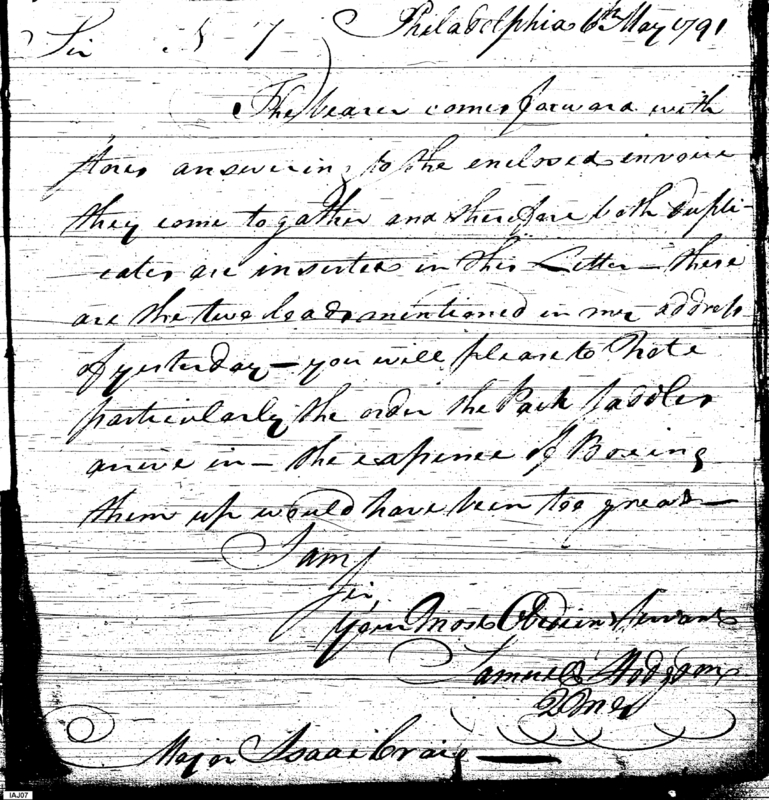 Philadelphia 6th May 1791
Sir N 7
The bearer comes forward with
stores answering to the enclosed invoice
they come togather and therefore both dupli-
-cates are inserted in this Letter - these
are the two loads mentioned in my address
of yesterday - you will please to Note
particularly the order the Pack Saddles
arrive in - the expence of Boxing
them up would have been too great -
I am
Sir
Your Most Obedient Servant
Samuel Hodgdon
QMG
Major Isaac Craig
IAJ07